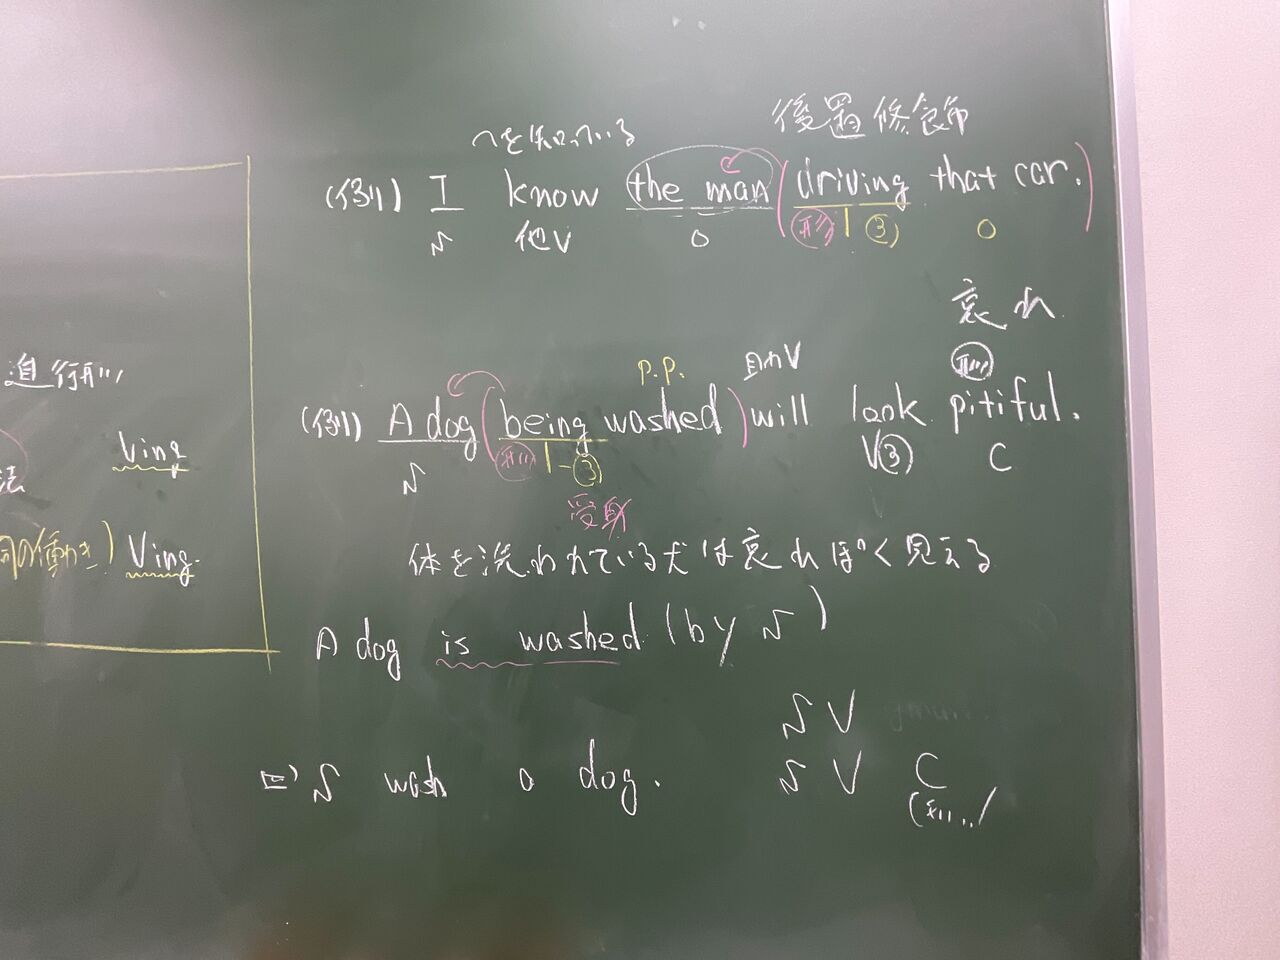 進行形
Ving
法
詞の働き) Ving.
後置修飾
〜を知っている
(例) I know the man (driving that car.)
S 他V O 形 ③ O
哀れ
p.p. 自V 形
(例) A dog (being washed) will look pitiful.
S 形 ③ V③ C
受身
体を洗われている犬は哀れぽく見える
A dog is washed (by S)
S V
⇒ S wash a dog. S V C